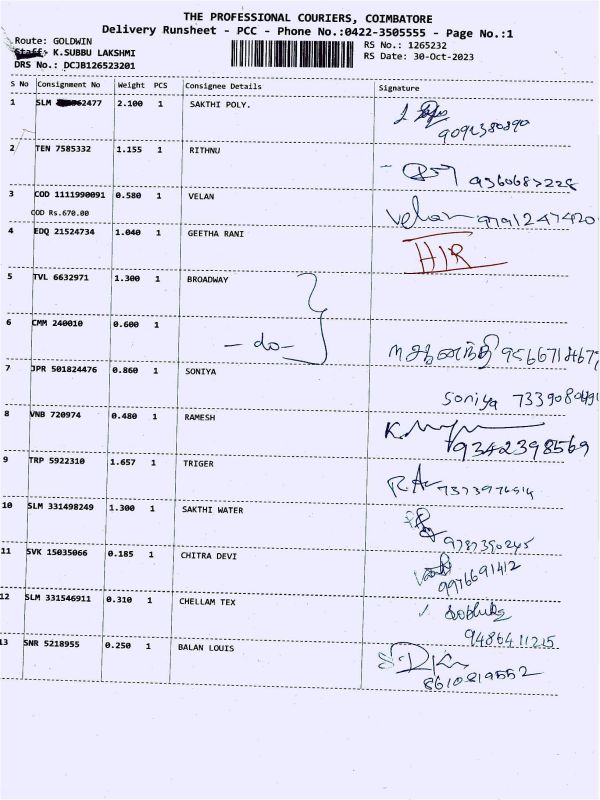 THE PROFESSIONAL COURIERS, COIMBATORE
Delivery Runsheet - PCC - Phone No.:0422-3505555 - Page No.:1
Route: GOLDWIN RS No.: 1265232
Staff: K.SUBBU LAKSHMI RS Date: 30-Oct-2023
DRS No.: DCJB126523201
S No Consignment No Weight PCS Consignee Details Signature
1 SLM 2.100 1 SAKTHI POLY.
2 TEN 7585332 1.155 1 RITHNU
3 COD 1111990091 0.580 1 VELAN Velan
COD Rs.670.00
4 EDQ 21524734 1.040 1 GEETHA RANI
5 TVL 6632971 1.300 1 BROADWAY
6 CMM 240010 0.600 1 - do -
7 JPR 501824476 0.860 1 SONIYA Soniya
8 VNB 720974 0.480 1 RAMESH 9342398569
9 TRP 5922310 1.657 1 TRIGER
10 SLM 331498249 1.300 1 SAKTHI WATER
11 SVK 15035066 0.185 1 CHITRA DEVI 9976691412
12 SLM 331546911 0.310 1 CHELLAM TEX
9486411215
13 SNR 5218955 0.250 1 BALAN LOUIS
8610819552